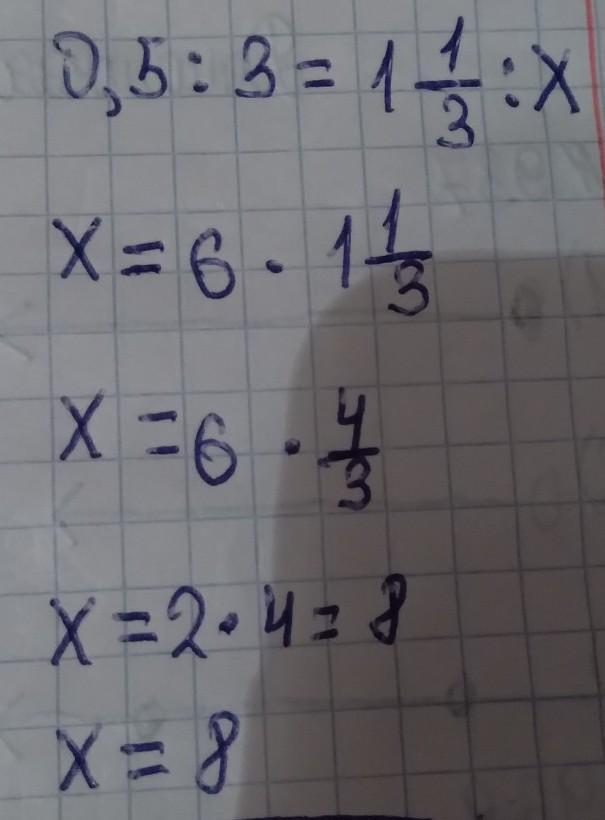 0,5 : 3 = 1 1/3 : x
x = 6 · 1 1/3
x = 6 · 4/3
x = 2 · 4 = 8
x = 8